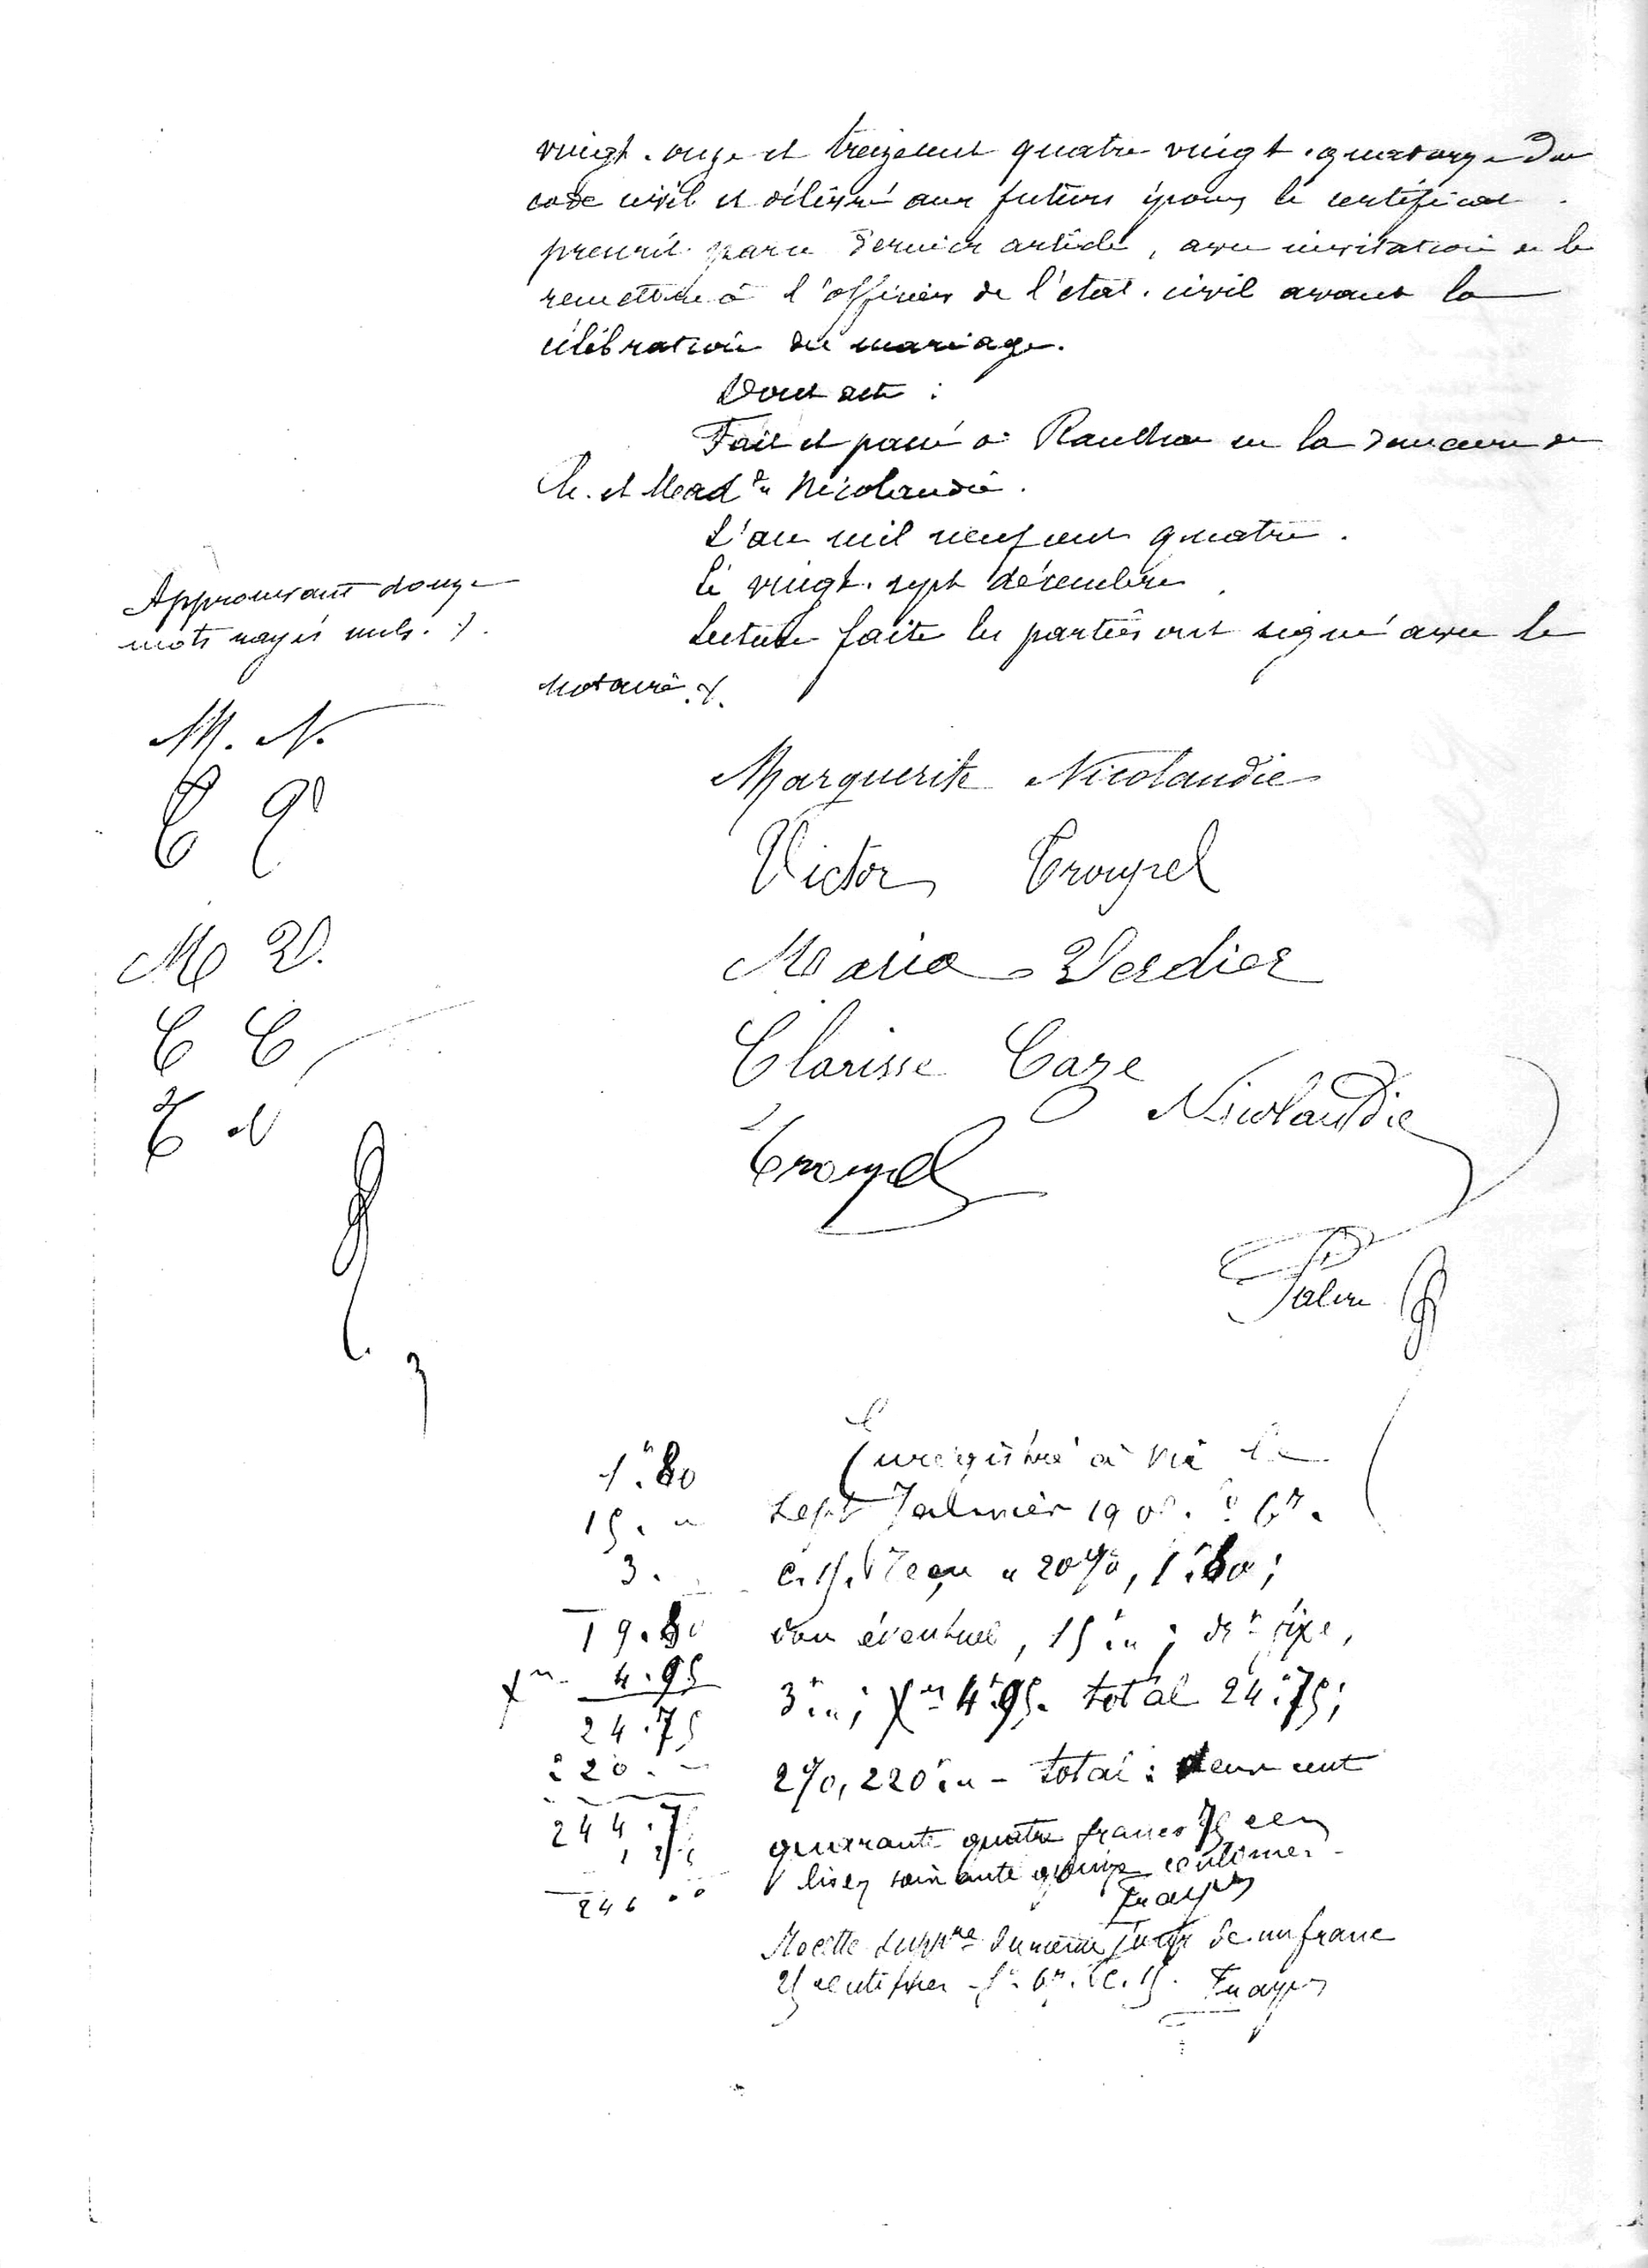 vingt. onze et treize cent quatre vingt. quatorze du
code civil et délivré aux futurs époux le certificat
prescrit par ce dernier article, avec invitation de le
remettre à l'officier de l'état. civil avant la
célébration du mariage.
Dont acte :
Fait et passé à en la demeure de
M. et Mad.e Nicolaudie.
L'an mil neuf cent quatre.
Le vingt. sept décembre
Approuvant douze
mots rayés nuls. /.
Lecture faite les parties ont signé avec le
notaire ./.
M. N.
Marguerite Nicolaudie
Victor
M V.
Maria Verdier
C C
Clarisse Caze
Nicolaudie
Enregistré à Vic le
1.80
sept Janvier 190
15. "
3.
Reçu à 20%, 1.80;
19.80
don éventuel, 15 "; dt fixe,
4.95
3 "; 4.95. total 24.75;
24.75
220. -
2%, 220 " - total : deux cent
244.75
quarante quatre francs 75 cen
lisez soixante quinze centimes.
246 00
Recette suppre du même jour de un franc
25 centimes